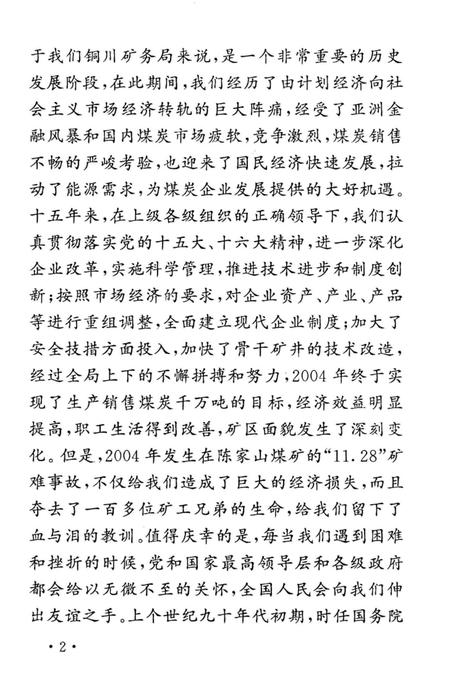 于我们铜川矿务局来说，是一个非常重要的历史
发展阶段，在此期间，我们经历了由计划经济向社
会主义市场经济转轨的巨大阵痛，经受了亚洲金
融风暴和国内煤炭市场疲软，竞争激烈，煤炭销售
不畅的严峻考验，也迎来了国民经济快速发展，拉
动了能源需求，为煤炭企业发展提供的大好机遇。
十五年来，在上级各级组织的正确领导下，我们认
真贯彻落实党的十五大、十六大精神，进一步深化
企业改革，实施科学管理，推进技术进步和制度创
新；按照市场经济的要求，对企业资产、产业、产品
等进行重组调整，全面建立现代企业制度；加大了
安全技措方面投入，加快了骨干矿井的技术改造，
经过全局上下的不懈拼搏和努力，2004年终于实
现了生产销售煤炭千万吨的目标，经济效益明显
提高，职工生活得到改善，矿区面貌发生了深刻变
化。但是，2004年发生在陈家山煤矿的“11.28”矿
难事故，不仅给我们造成了巨大的经济损失，而且
夺去了一百多位矿工兄弟的生命，给我们留下了
血与泪的教训。值得庆幸的是，每当我们遇到困难
和挫折的时候，党和国家最高领导层和各级政府
都会给以无微不至的关怀，全国人民会向我们伸
出友谊之手。上个世纪九十年代初期，时任国务院
·2·